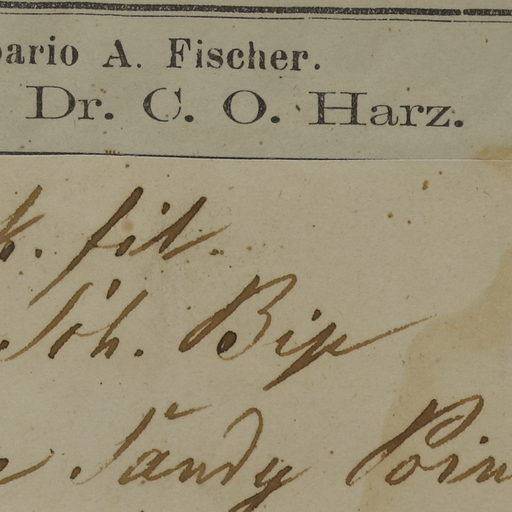 bario A. Fischer.
Dr. C. O. Harz.
fil.
Sch. Bip
Sandy Poin